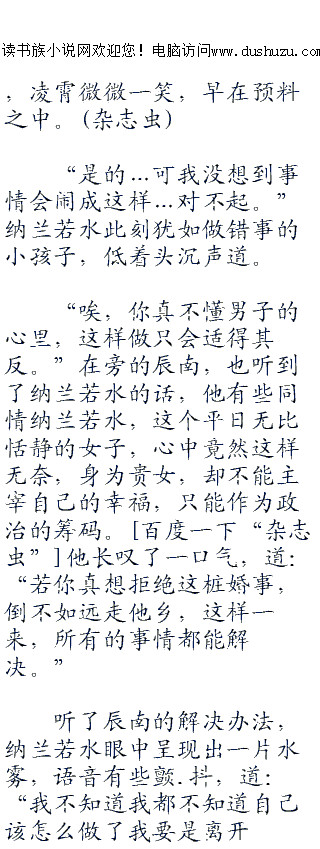 读书族小说网欢迎您！电脑访问www.dushuzu.com
，凌霄微微一笑，早在预料
之中。(杂志虫)
“是的…可我没想到事
情会闹成这样…对不起。”
纳兰若水此刻犹如做错事的
小孩子，低着头沉声道。
“唉，你真不懂男子的
心里，这样做只会适得其
反。”在旁的辰南，也听到
了纳兰若水的话，他有些同
情纳兰若水，这个平日无比
恬静的女子，心中竟然这样
无奈，身为贵女，却不能主
宰自己的幸福，只能作为政
治的筹码。[百度一下“杂志
虫”]他长叹了一口气，道：
“若你真想拒绝这桩婚事，
倒不如远走他乡，这样一
来，所有的事情都能解
决。”
听了辰南的解决办法，
纳兰若水眼中呈现出一片水
雾，语音有些颤.抖，道：
“我不知道我都不知道自己
该怎么做了我要是离开